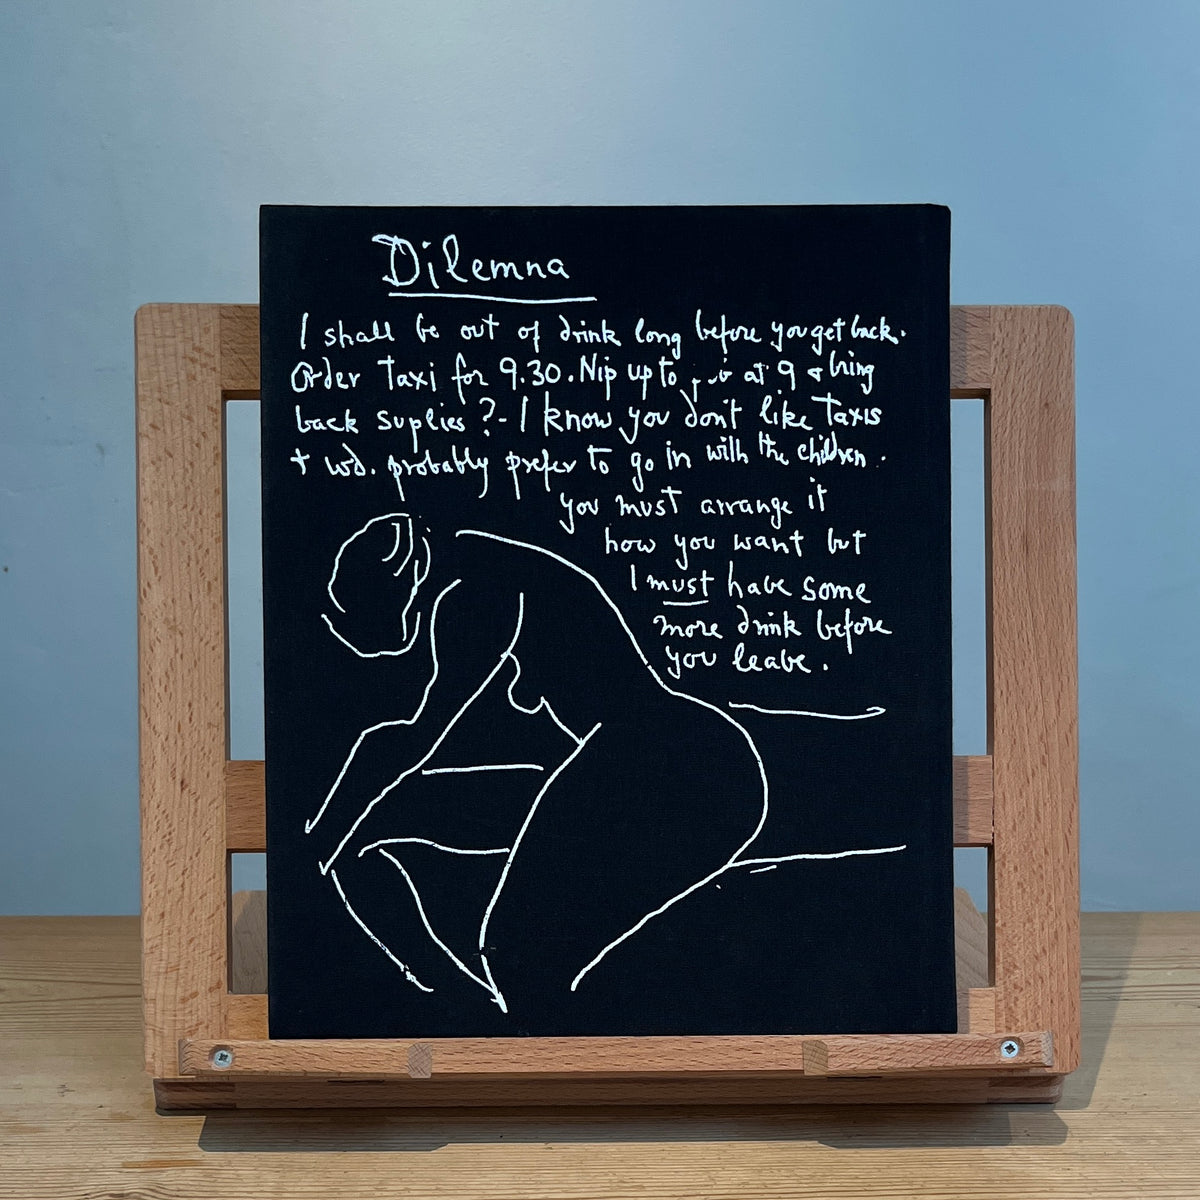 Dilemna
I shall be out of drink long before you get back.
Order Taxi for 9.30. Nip up to at 9 & bring
back suplies? - I know you don't like Taxis
+ wd. probably prefer to go in with the children.
you must arrange it
how you want but
I must have some
more drink before
you leave.